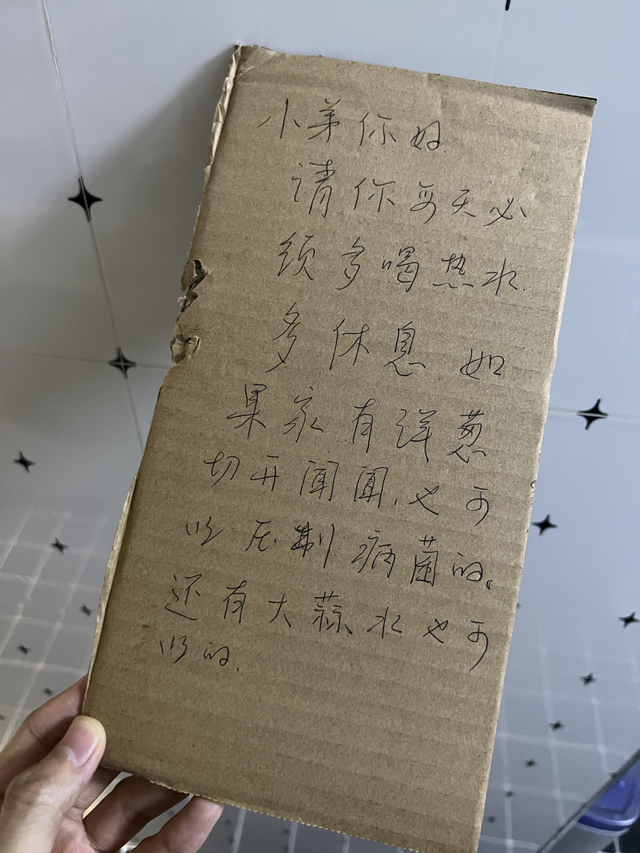 小弟你好.
请你每天必
须多喝热水.
多休息.如
果家有洋葱
切开闻闻,也可
以压制病菌的。
还有大蒜水也可
以的.